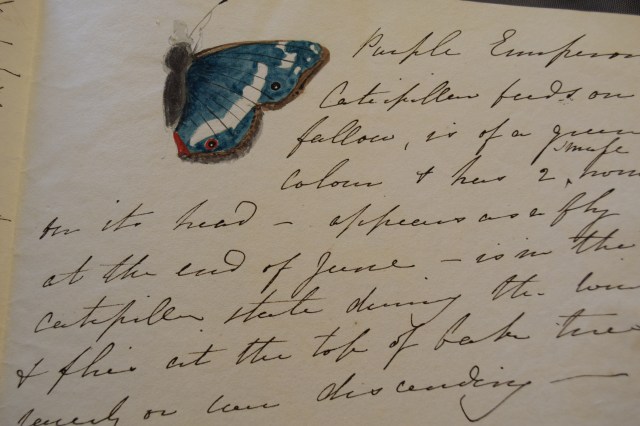 Purple Emperor
Caterpiller feeds on
fallow, is of a green
colour & has 2 snufe horn
on its head – appears as a fly
at the end of June – is in the
caterpiller state during the win
& flies at the top of oake trees
rarely or ever descending —